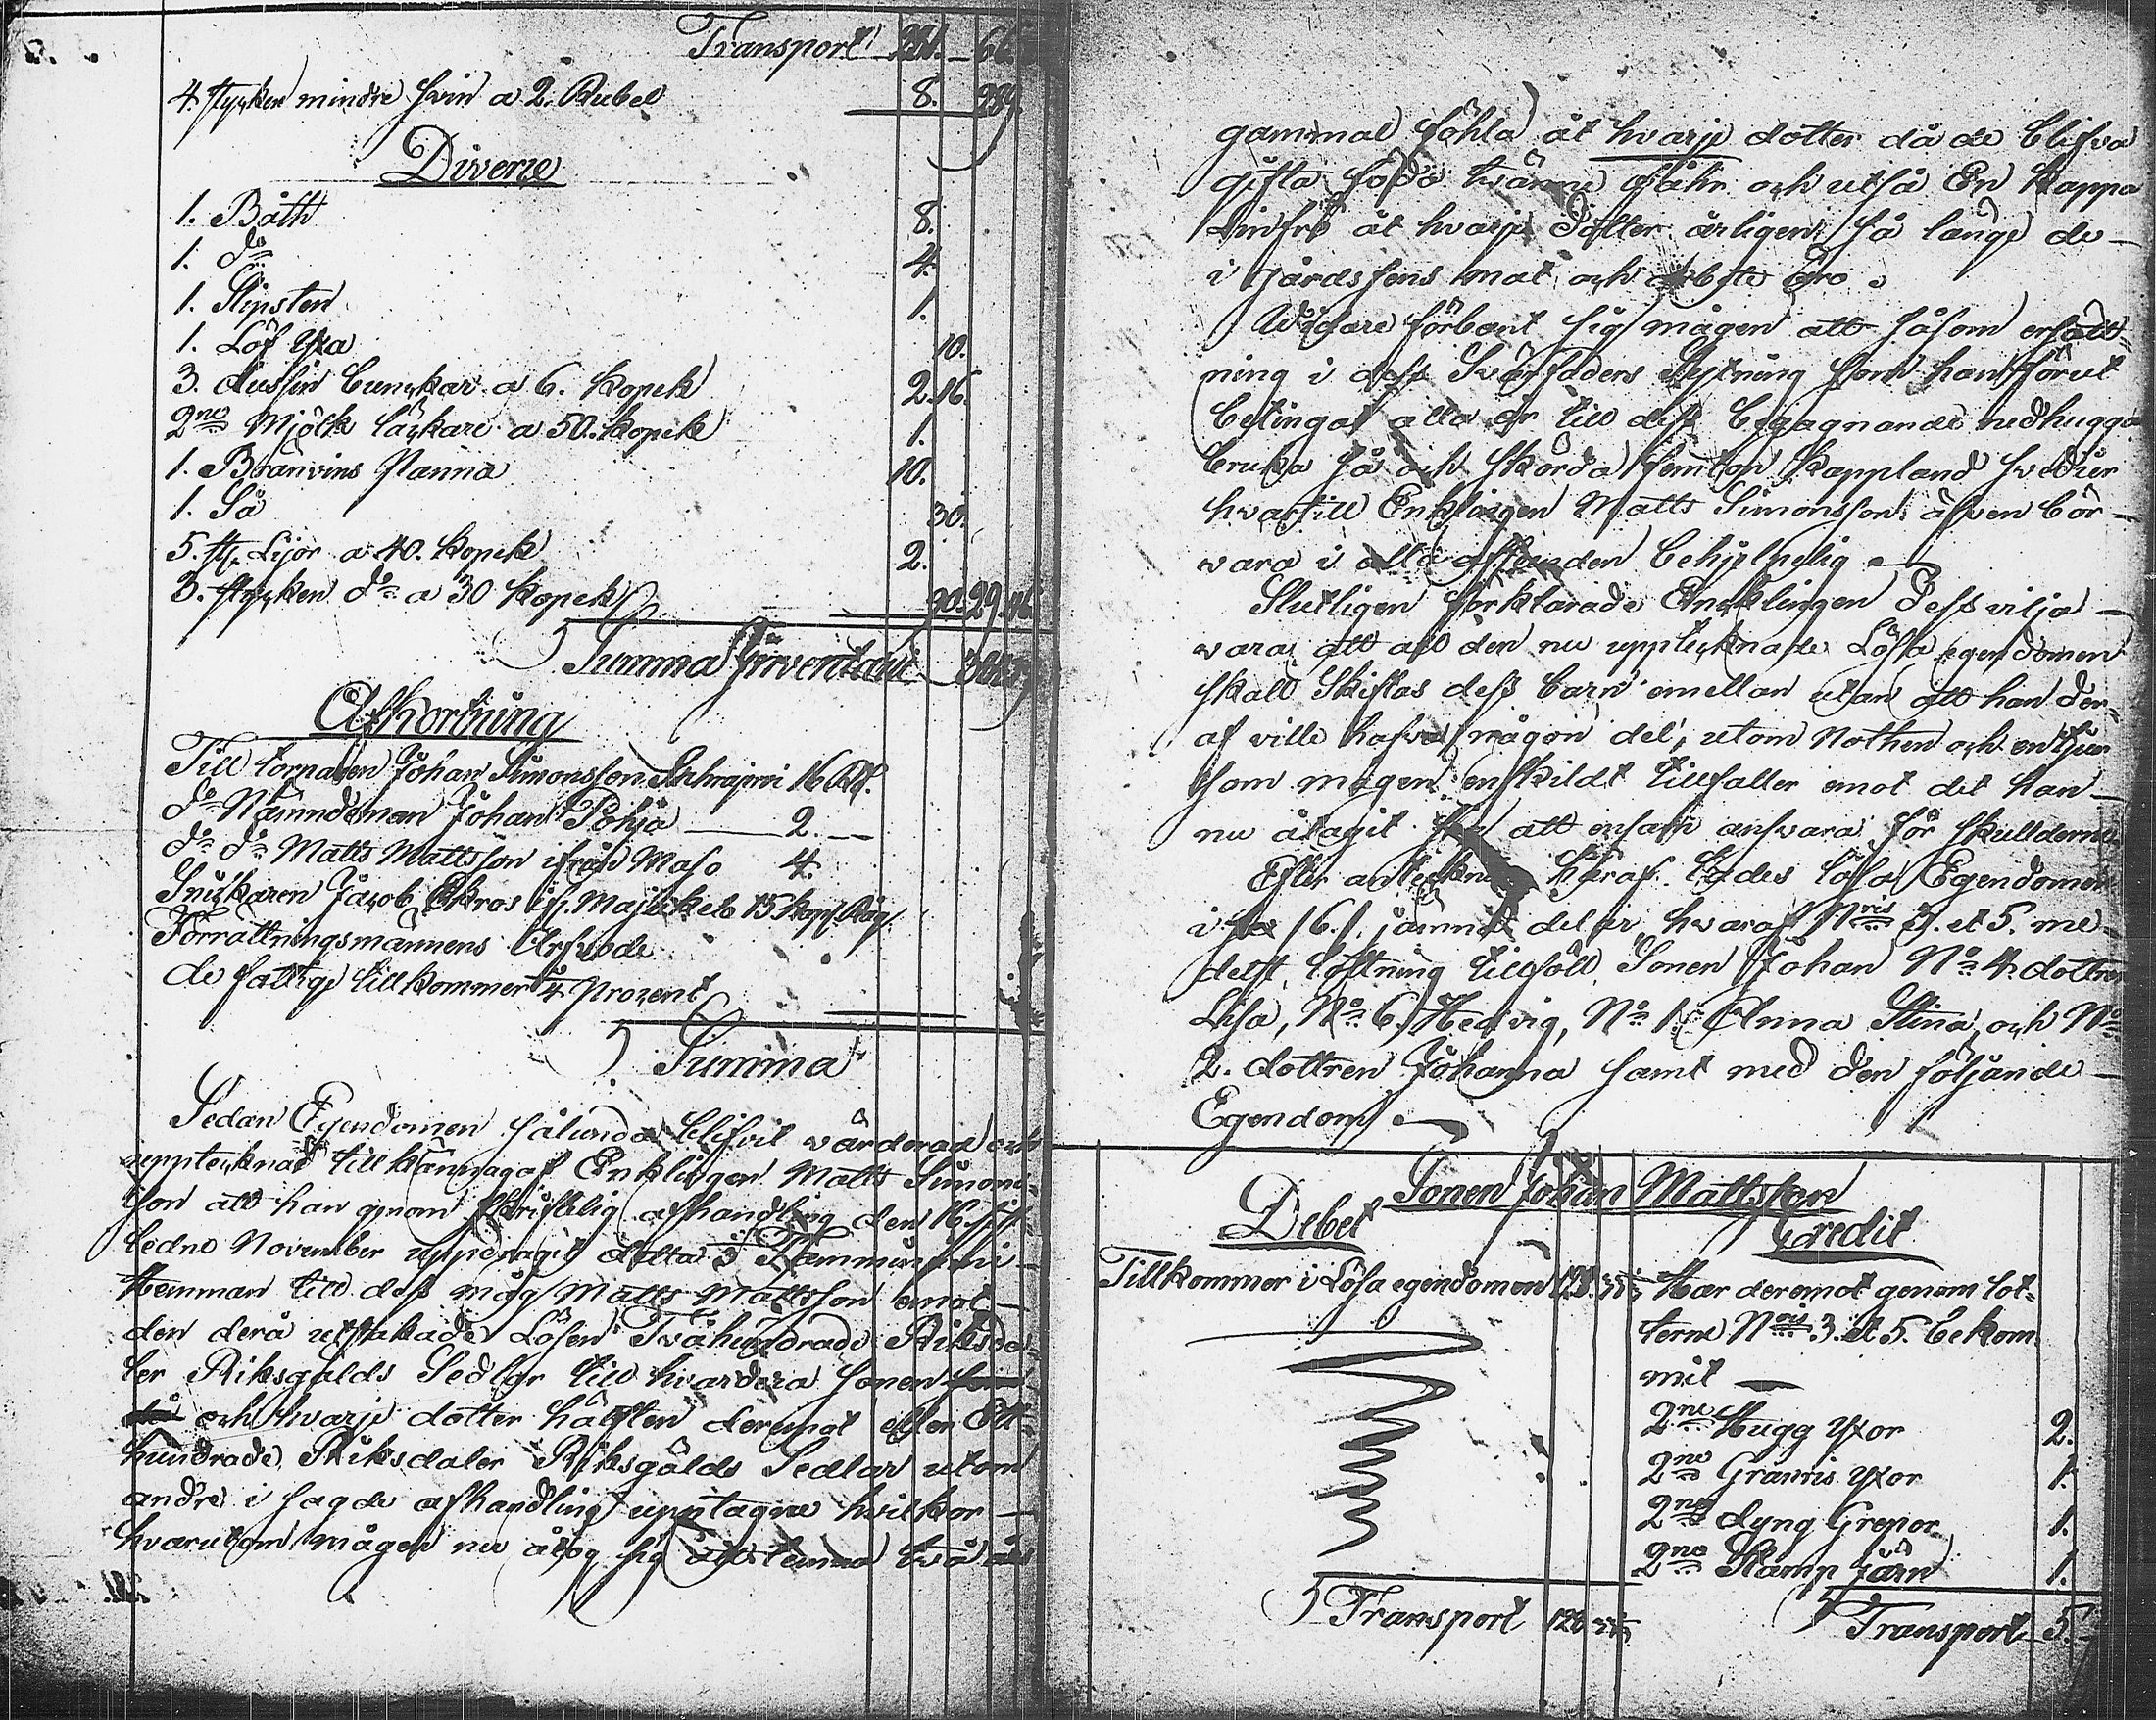 Transport 281. 66
4. stycken mindre svin a 2. Rubel 8. 289.
Diverse
1. Båth 8.
1. do 4.
1. Slipsten 1.
1. Löf Yxa 10.
3. dussin bunckar a 6. Kopek 2.16.
2ne Mjölk läckare a 50. Kopek 1.
1. Bränvins Panna 10.
1. Så 30.
5. st. Lijor a 40. Kopek 2.
3. stycken do a 30 Kopek 90. 29. 46
Summa Inventarii
Afkortning
Till torparen Johan Simonsson 16 Rbl.
do Nämndeman Johan Pohja 2.
do do Matts Mattsson ifrån Maso 4.
Snickaren Jacob Ekros ifr. 15 kapp. Råg.
Förrättningsmännens Arfvode
de fattige tillkommer Procent
Summa
Sedan Egendomen sålunda blifvit värderad och
upptecknad tillkännagaf Enklingen Matts Simons-
son att han genom skriftelig afhandling den 16. sist-
ledne November uppdragit detta
Hemman till dess måg Matts Mattsson emot
den derå utstakade Lösen Tvåhundrade Riksda-
ler Riksgälds Sedlar till hvardera sonen
och hvarje dotter hälften deremot eller Ett
hundrade Riksdaler Riksgälds Sedlar utom
andre i sagde afhandling upptagne hvilkor
hvarutom mågen nu åtog sig att lemna två års
gammal fohla åt hvarje dotter då de blifva
gifta föda tvänne och utså En Kappa
Linfrö åt hvarje Dotter årligen så länge de
i gårdssens mat och arbete äro.
Widare förbant sig mågen att såsom ersätt-
ning i dess Svärfaders Skjtning som han förut
betingat alla år till dess begagnande nedhugga
bruka så och skörda femton Kappland svedier
hvartill Enklingen Matts Simonsson äfven bör
vara i alla afseenden behjelpelig.
Slutligen förklarade Enklingen Dess vilja
vara att all den nu upptecknade Lösa egendomen
skall Skiftas dess barn emellan utan att han der-
af ville hafva någon del, utom Nothen och en
som mågen enskildt tillfaller emot det han
nu åtagit sig att ensam ansvara för skullderne.
Efter anteckning häraf lades lösa Egendomen
i 6. jämna delar, hvaraf Nris 3. et 5. me-
delst lottning tillföll Sonen Johan No 4. dottren
Lisa, No 6. Hedvig, No 1. Anna Stina, och No
2. dottren Johanna samt med den följande
Egendom.
Sonen Johan Mattsson
Debet Credit
Tillkommer i Lösa egendomen 120. Har deremot genom lot-
terne Nris 3. et 5. bekom-
mit
2ne Hugg Yxor 2.
2ne Granris Yxor 1.
2ne Dyng Grepor 1.
2ne Stamp Järn 1.
Transport 120 Transport 5.